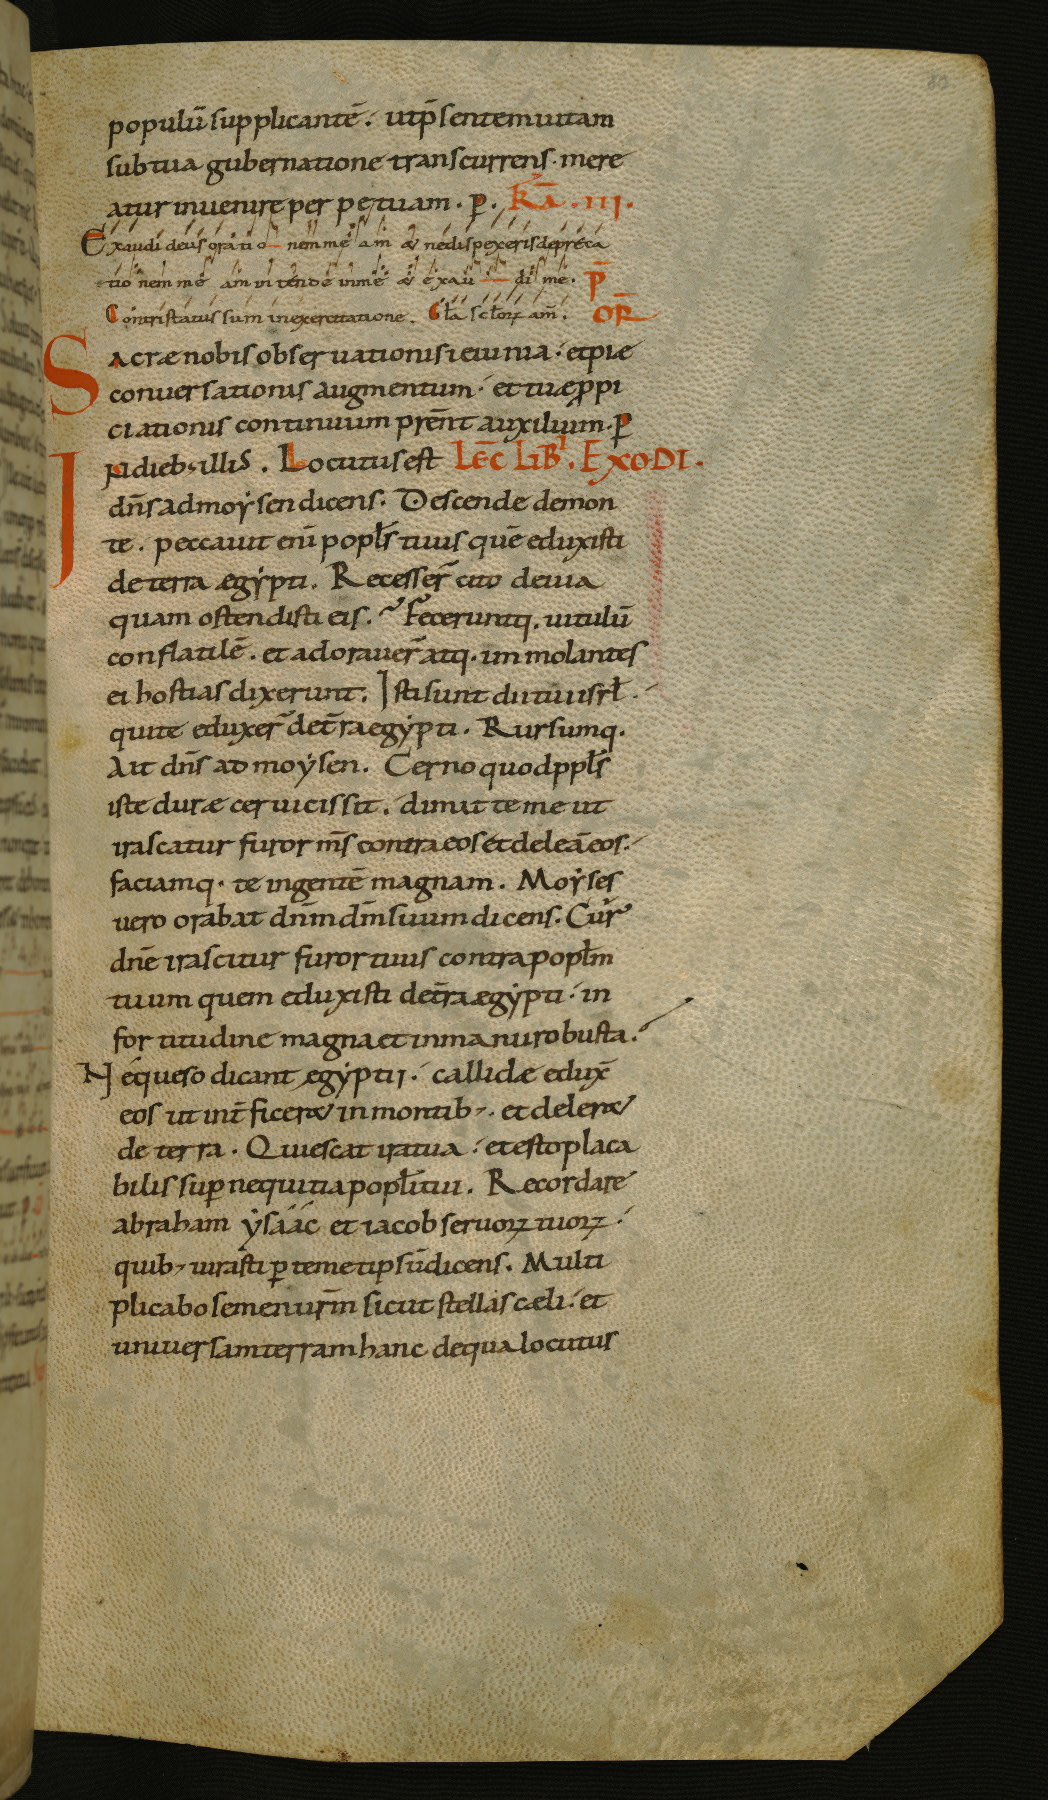 populū supplicantē. ut p̄sentem uitam
sub tua gubernatione transcurrens. mere
atur inuenire perpetuam. p̱. FR̄A. III.
Exaudi deus oratio nem meam & ne dispexeris depreca
tionem meam intende in me & exau di me. P̄
Contristatus sum in exercitatione. Gła scłoꝝ am̄. OR̄
Sacræ nobis obseruationis ieiunia. et piæ
conuersationis augmentum. et tuæ ꝓpi
ciationis continuum prēnt auxilium. ꝑ
In dieb; illis. Locutus est LĒC LIB̄I. EXODI.
dn̄s ad moẏsen dicens. Descende de mon
te. peccauit eni poplˉs tuus quē eduxisti
de terra ægẏpti. Recesser̄ cito de uia
quam ostendisti eis. Feceruntq. uitulū
conflatilē. et adorauer̄ atq. immolantes
ei hostias dixerunt. Isti sunt dii tui isrł.
qui te eduxer̄ de t̄ra egẏpti. Rursumq.
Ait dn̄s ad moẏsen. Cerno quod pplˉs
iste duræ ceruicis sit. dimitte me ut
irascatur furor m̄s contra eos et deleā eos.
faciamq. te in gentē magnam. Moẏses
uero orabat dn̄m dm̄ suum dicens. Cur
dn̄e irascitur furor tuus contra popłm
tuum quem eduxisti de t̄ra ægẏpti. in
fortitudine magna et in manu robusta.
Ne queso dicant ægẏptii. callidæ edux̄
eos ut int̄ficer& in montib;. et deler&
de terra. Quiescat ira tua. et esto placa
bilis sup nequitia popłi tui. Recordare
abraham ẏsaac et iacob seruoꝝ tuoꝝ.
quib; iurasti ꝑ temetipsū dicens. Multi
plicabo semen ur̄m sicut stellas cæli. et
uniuersam terram hanc de qua locutus